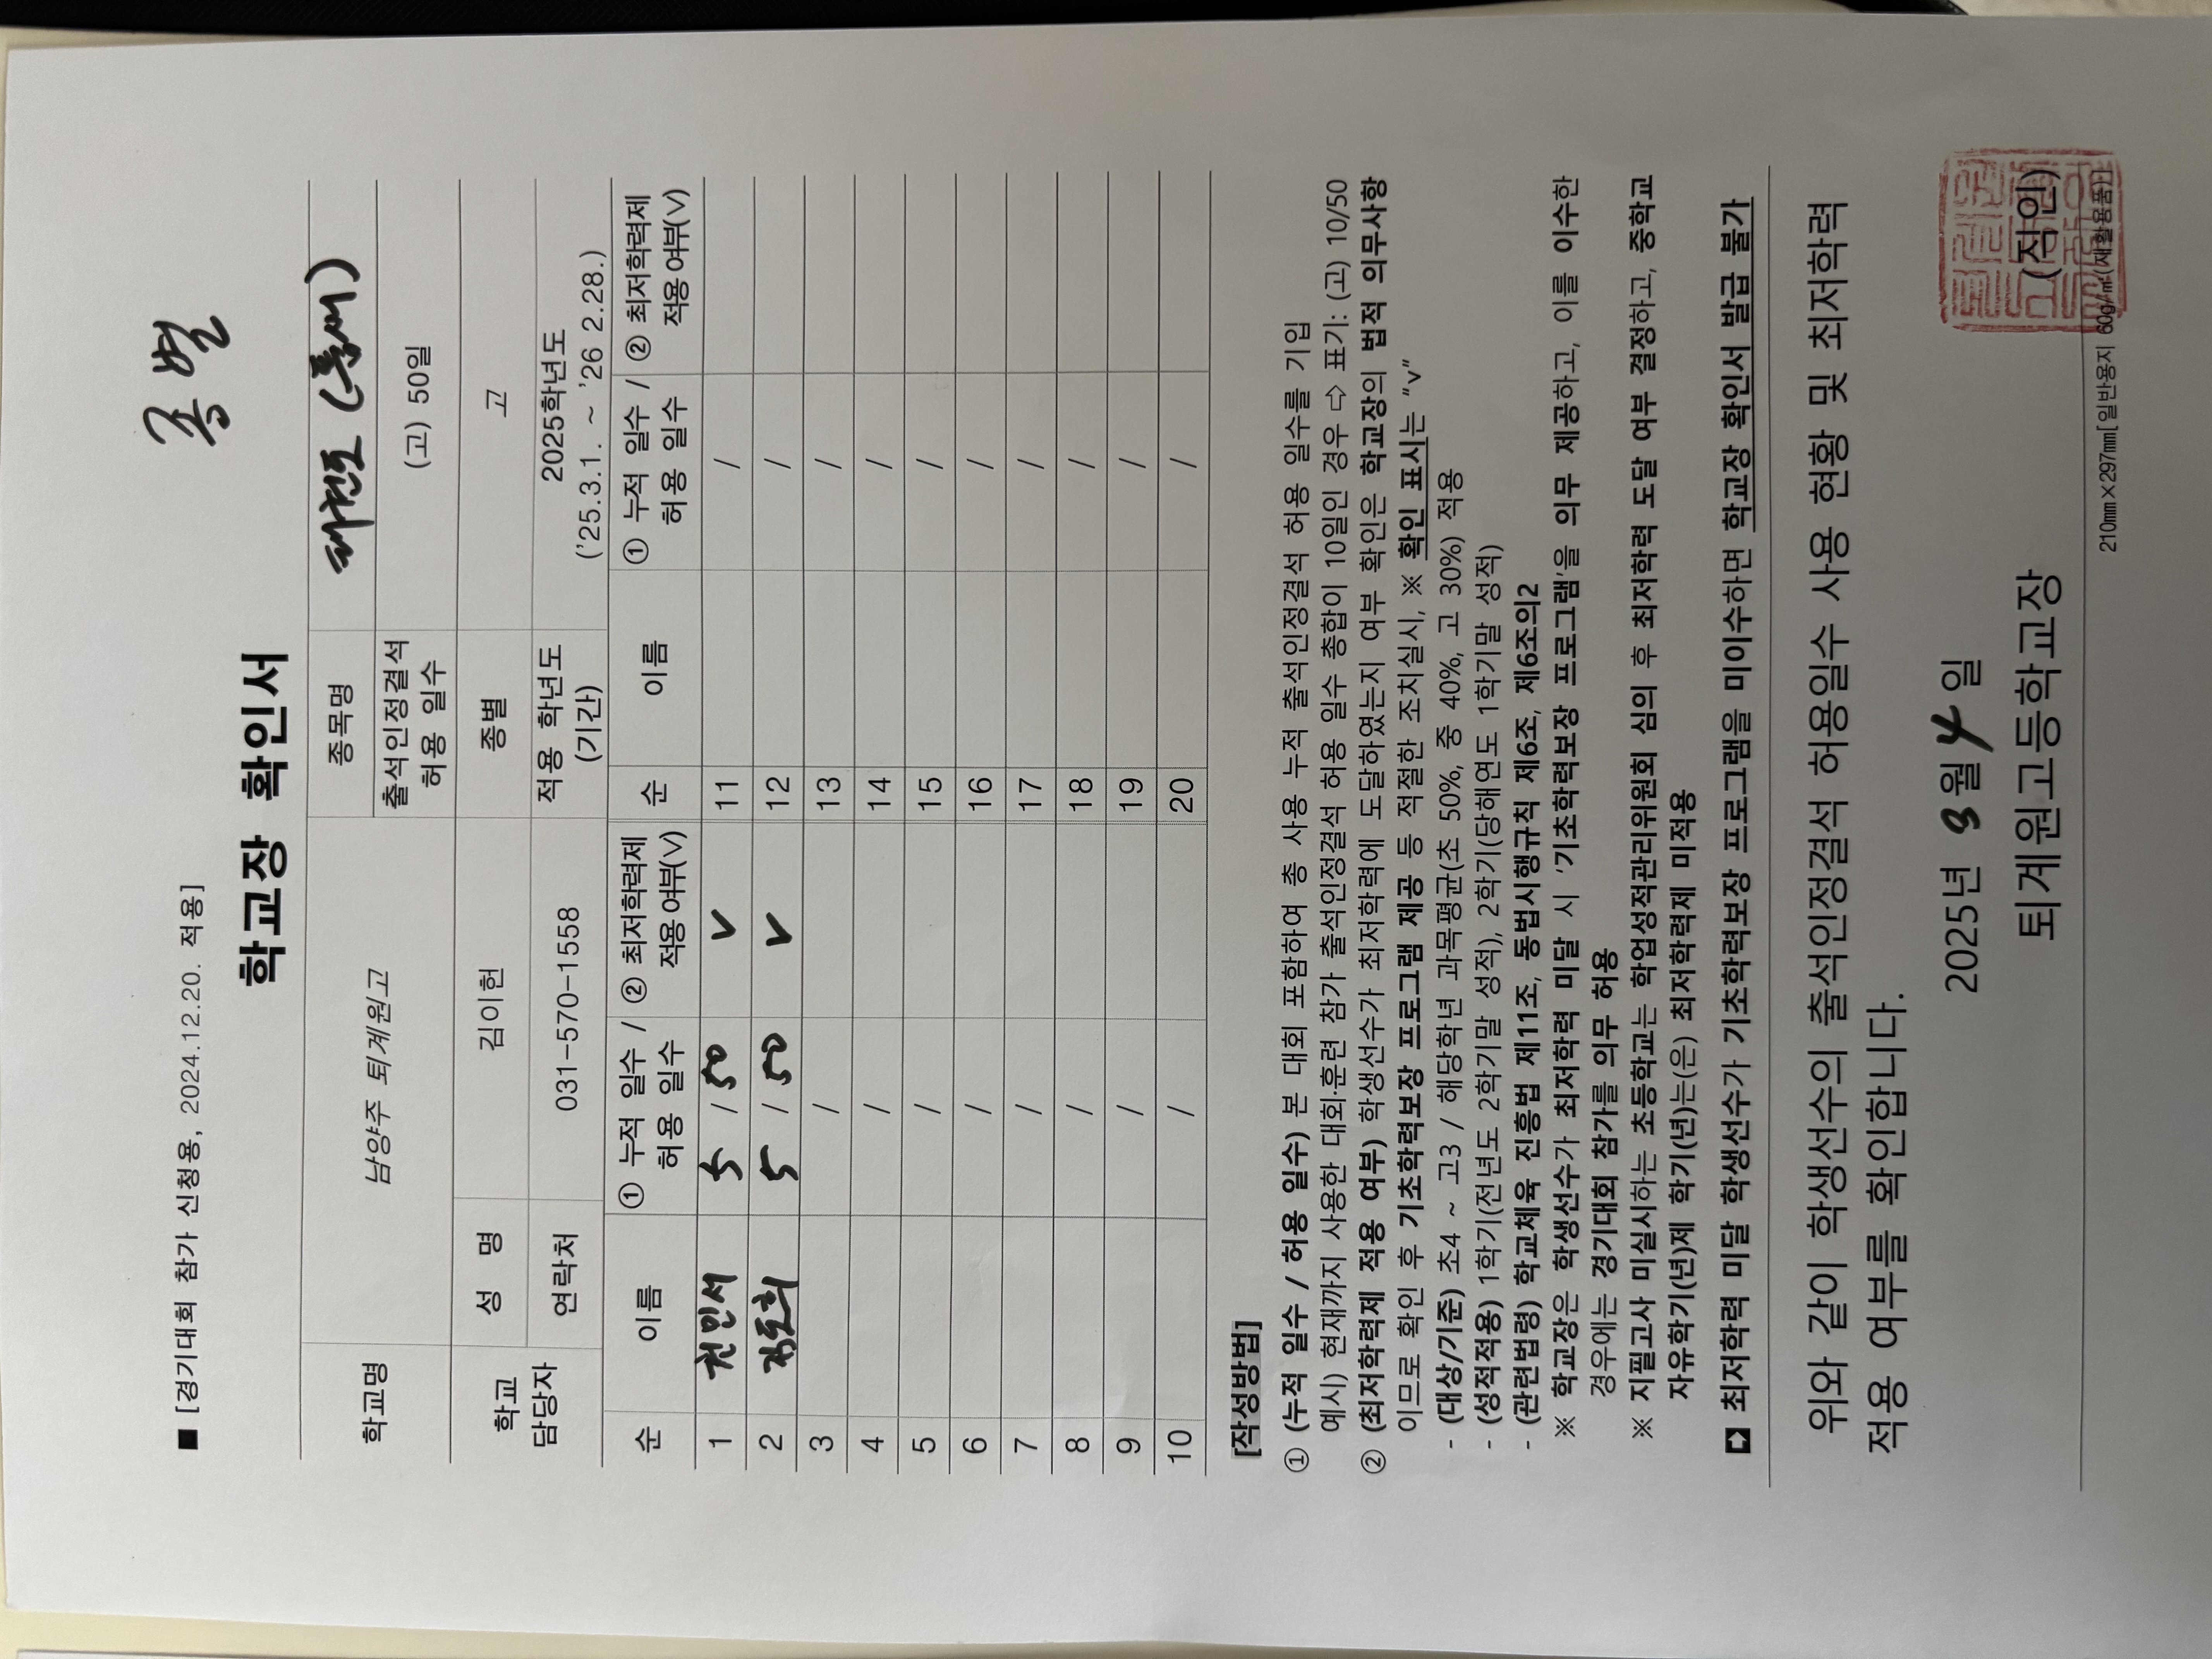 품벌
■ [경기대회 참가 신청용, 2024.12.20. 적용]
학교장 확인서
학교명 남양주 퇴계원고 종목명 태권도 (품새)
출석인정결석 허용 일수 (고) 50일
학교 담당자 성 명 김이헌 종별 고
연락처 031-570-1558 적용 학년도 (기간) 2025학년도 ('25.3.1. ~ '26 2.28.)
순 이름 ① 누적 일수 / 허용 일수 ② 최저학력제 적용 여부(V) 순 이름 ① 누적 일수 / 허용 일수 ② 최저학력제 적용 여부(V)
1 천민서 5 / 50 V 11 /
2 5 / 50 V 12 /
3 / 13 /
4 / 14 /
5 / 15 /
6 / 16 /
7 / 17 /
8 / 18 /
9 / 19 /
10 / 20 /
[작성방법]
① (누적 일수 / 허용 일수) 본 대회 포함하여 총 사용 누적 출석인정결석 허용 일수를 기입
예시) 현재까지 사용한 대회·훈련 참가 출석인정결석 허용 일수 총합이 10일인 경우 ⇨ 표기: (고) 10/50
② (최저학력제 적용 여부) 학생선수가 최저학력에 도달하였는지 여부 확인은 학교장의 법적 의무사항
이므로 확인 후 기초학력보장 프로그램 제공 등 적절한 조치실시, ※ 확인 표시는 "v"
- (대상/기준) 초4 ~ 고3 / 해당학년 과목평균(초 50%, 중 40%, 고 30%) 적용
- (성적적용) 1학기(전년도 2학기말 성적), 2학기(당해연도 1학기말 성적)
- (관련법령) 학교체육 진흥법 제11조, 동법시행규칙 제6조, 제6조의2
※ 학교장은 학생선수가 최저학력 미달 시 '기초학력보장 프로그램'을 의무 제공하고, 이를 이수한
경우에는 경기대회 참가를 의무 허용
※ 지필고사 미실시하는 초등학교는 학업성적관리위원회 심의 후 최저학력 도달 여부 결정하고, 중학교
자유학기(년)제 학기(년)는(은) 최저학력제 미적용
➡ 최저학력 미달 학생선수가 기초학력보장 프로그램을 미이수하면 학교장 확인서 발급 불가
위와 같이 학생선수의 출석인정결석 허용일수 사용 현황 및 최저학력
적용 여부를 확인합니다.
2025년 3월 4일
퇴계원고등학교장 (직인)
210mm×297mm[일반용지 60g/㎡(재활용품)]